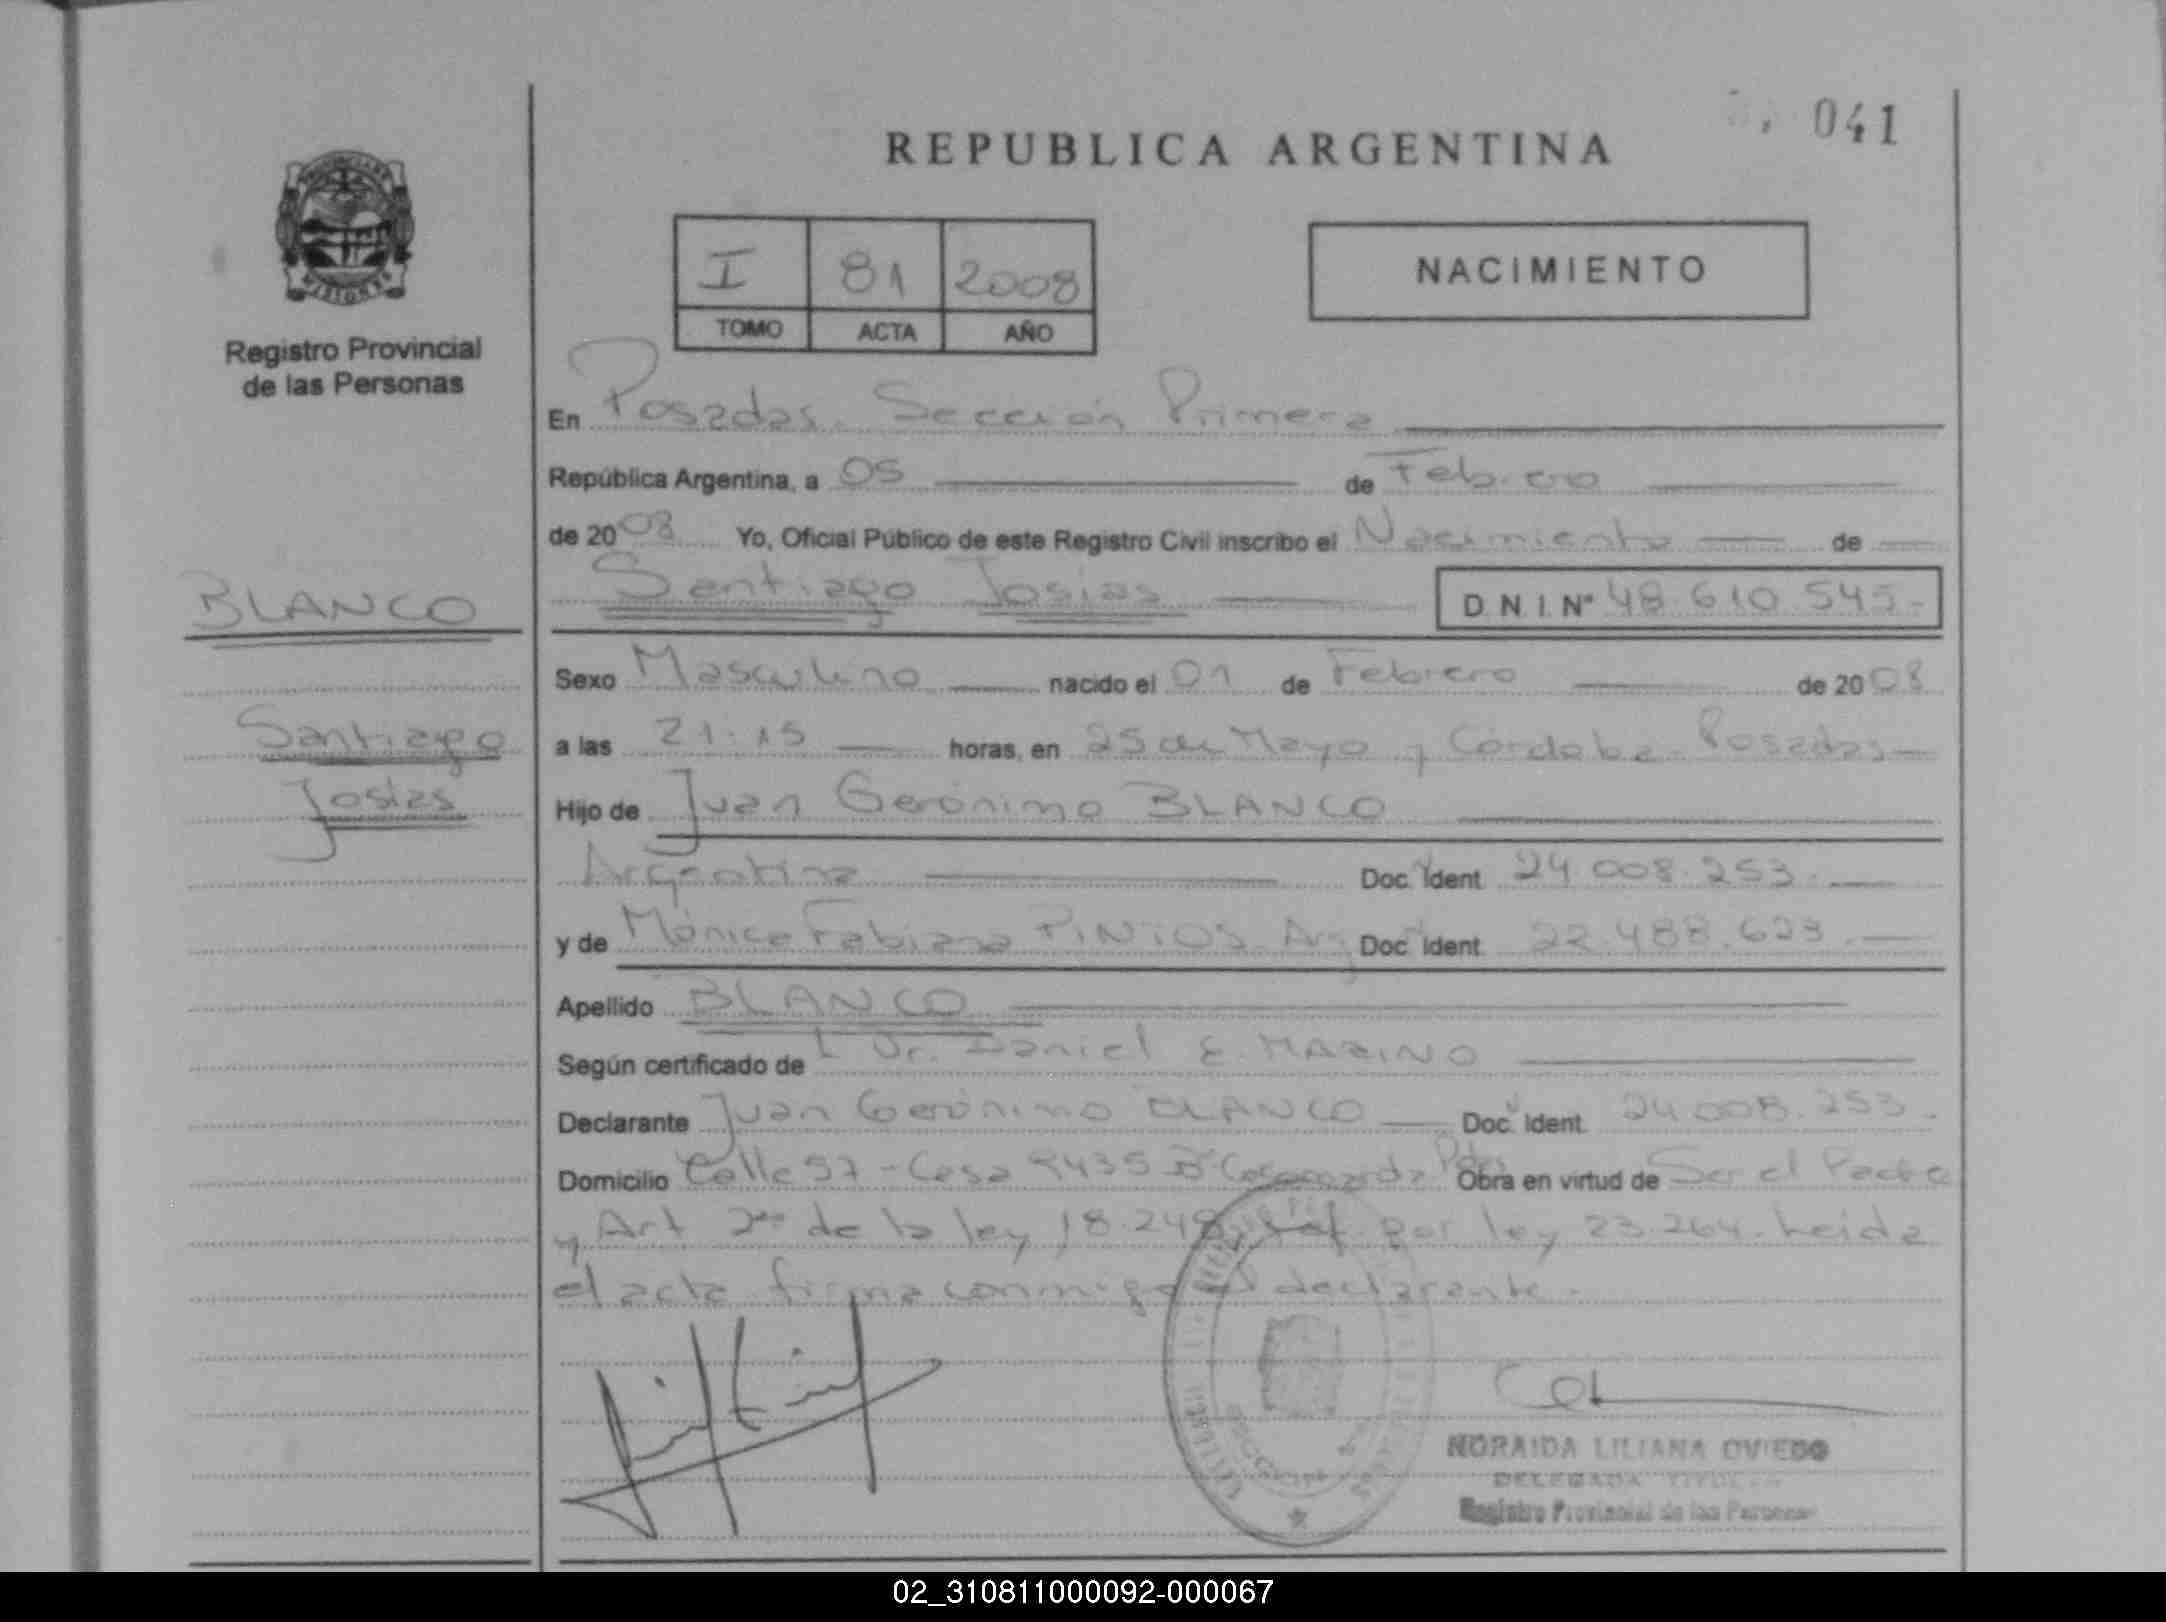 041
REPUBLICA ARGENTINA
PROVINCIA DE
MISIONES
Registro Provincial
de las Personas
I 81 2008
TOMO ACTA AÑO
NACIMIENTO
En Posadas. Sección Primera
República Argentina, a 05 de Febrero
de 2008 Yo, Oficial Público de este Registro Civil inscribo el Nacimiento de
BLANCO
Santiago Josías D.N.I.Nº 48.610.545.-
Sexo Masculino nacido el 01 de Febrero de 2008
Santiago
a las 21:15 horas, en 25 de Mayo y Córdoba - Posadas
Josías
Hijo de Juan Gerónimo BLANCO
Argentina Doc. Ident. 24.008.253.
y de Mónica Fabiana PINTOS Arg Doc. Ident. 22.488.623.
Apellido BLANCO
Según certificado de L Dr. Daniel E. MARINO
Declarante Juan Gerónimo BLANCO Doc. Ident. 24.008.253.
Domicilio Calle 97 - Casa 9435 Bº Pdas Obra en virtud de Ser el Padre
y Art 2do de la ley 18.248, por ley 23.264. Leida
el acta firma conmigo el declarante.
SECCION
NORAIDA LILIANA OVIEDO
DELEGADA TITULAR
Registro Provincial de las Personas
02_310811000092-000067